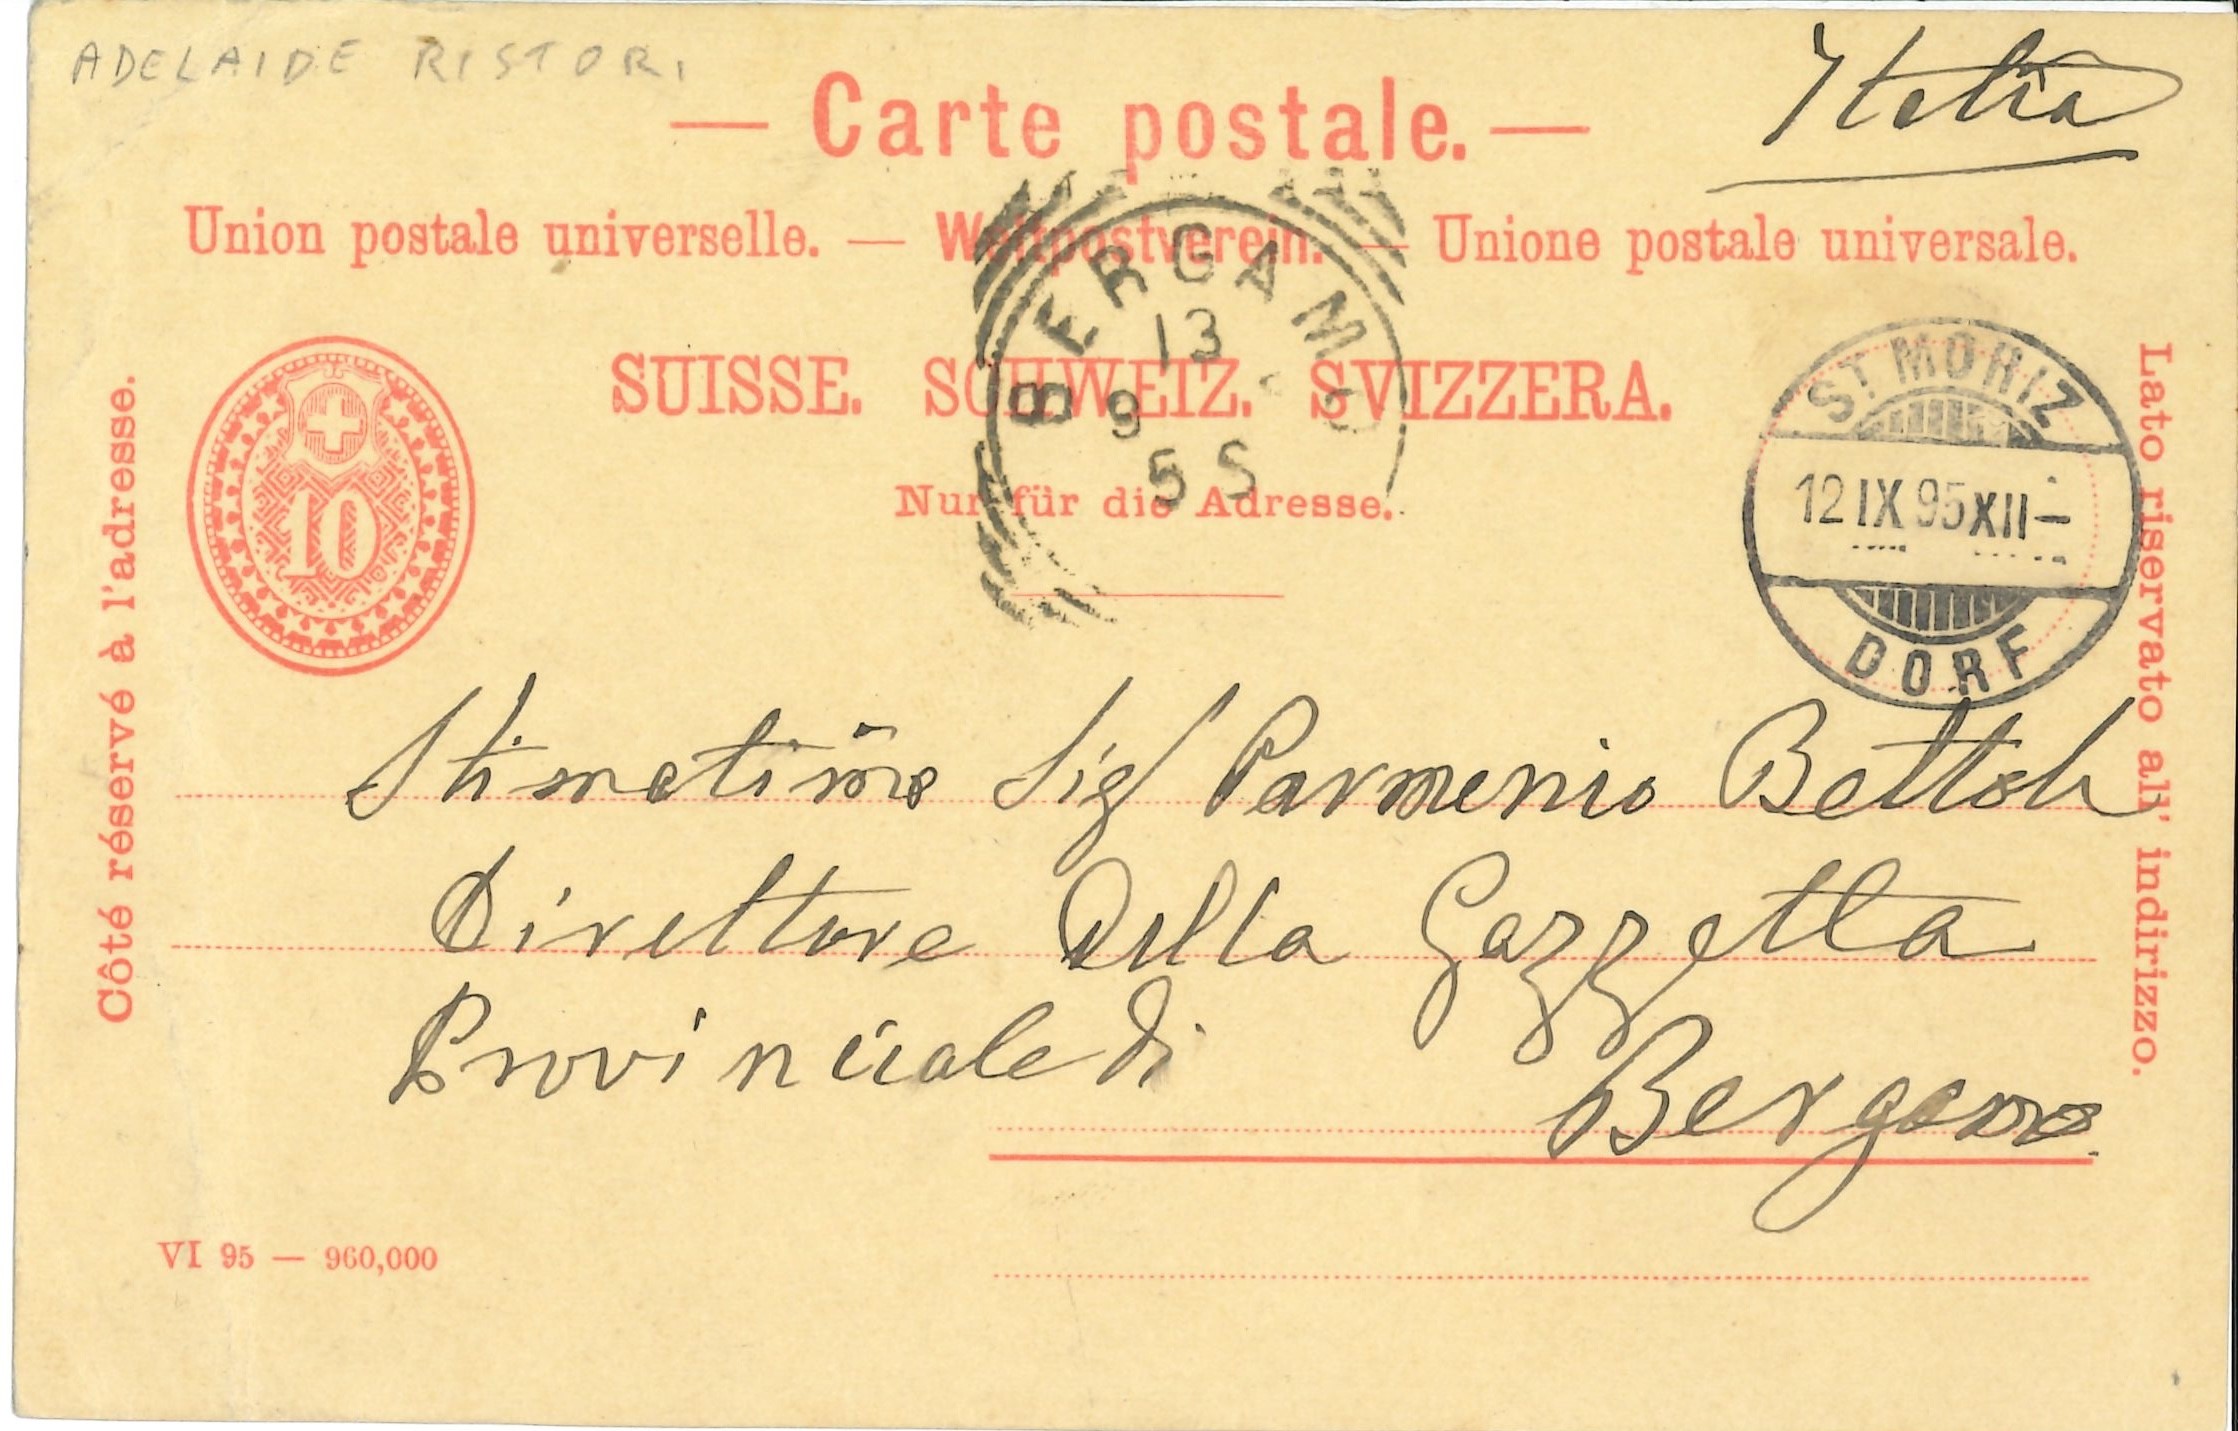 ADELAIDE RISTORI
Italia
— Carte postale. —
Union postale universelle. — Weltpostverein. — Unione postale universale.
SUISSE. SCHWEIZ. SVIZZERA.
Nur für die Adresse.
10
BERGAMO
13
9
5 S
ST MORIZ
12 IX 95 XII –
DORF
Côté réservé à l'adresse.
Lato riservato all' indirizzo.
Stimatimo Sig Parmenio Bettoli
Direttore Della Gazzetta
Provinciale di
Bergamo.
VI 95 — 960,000